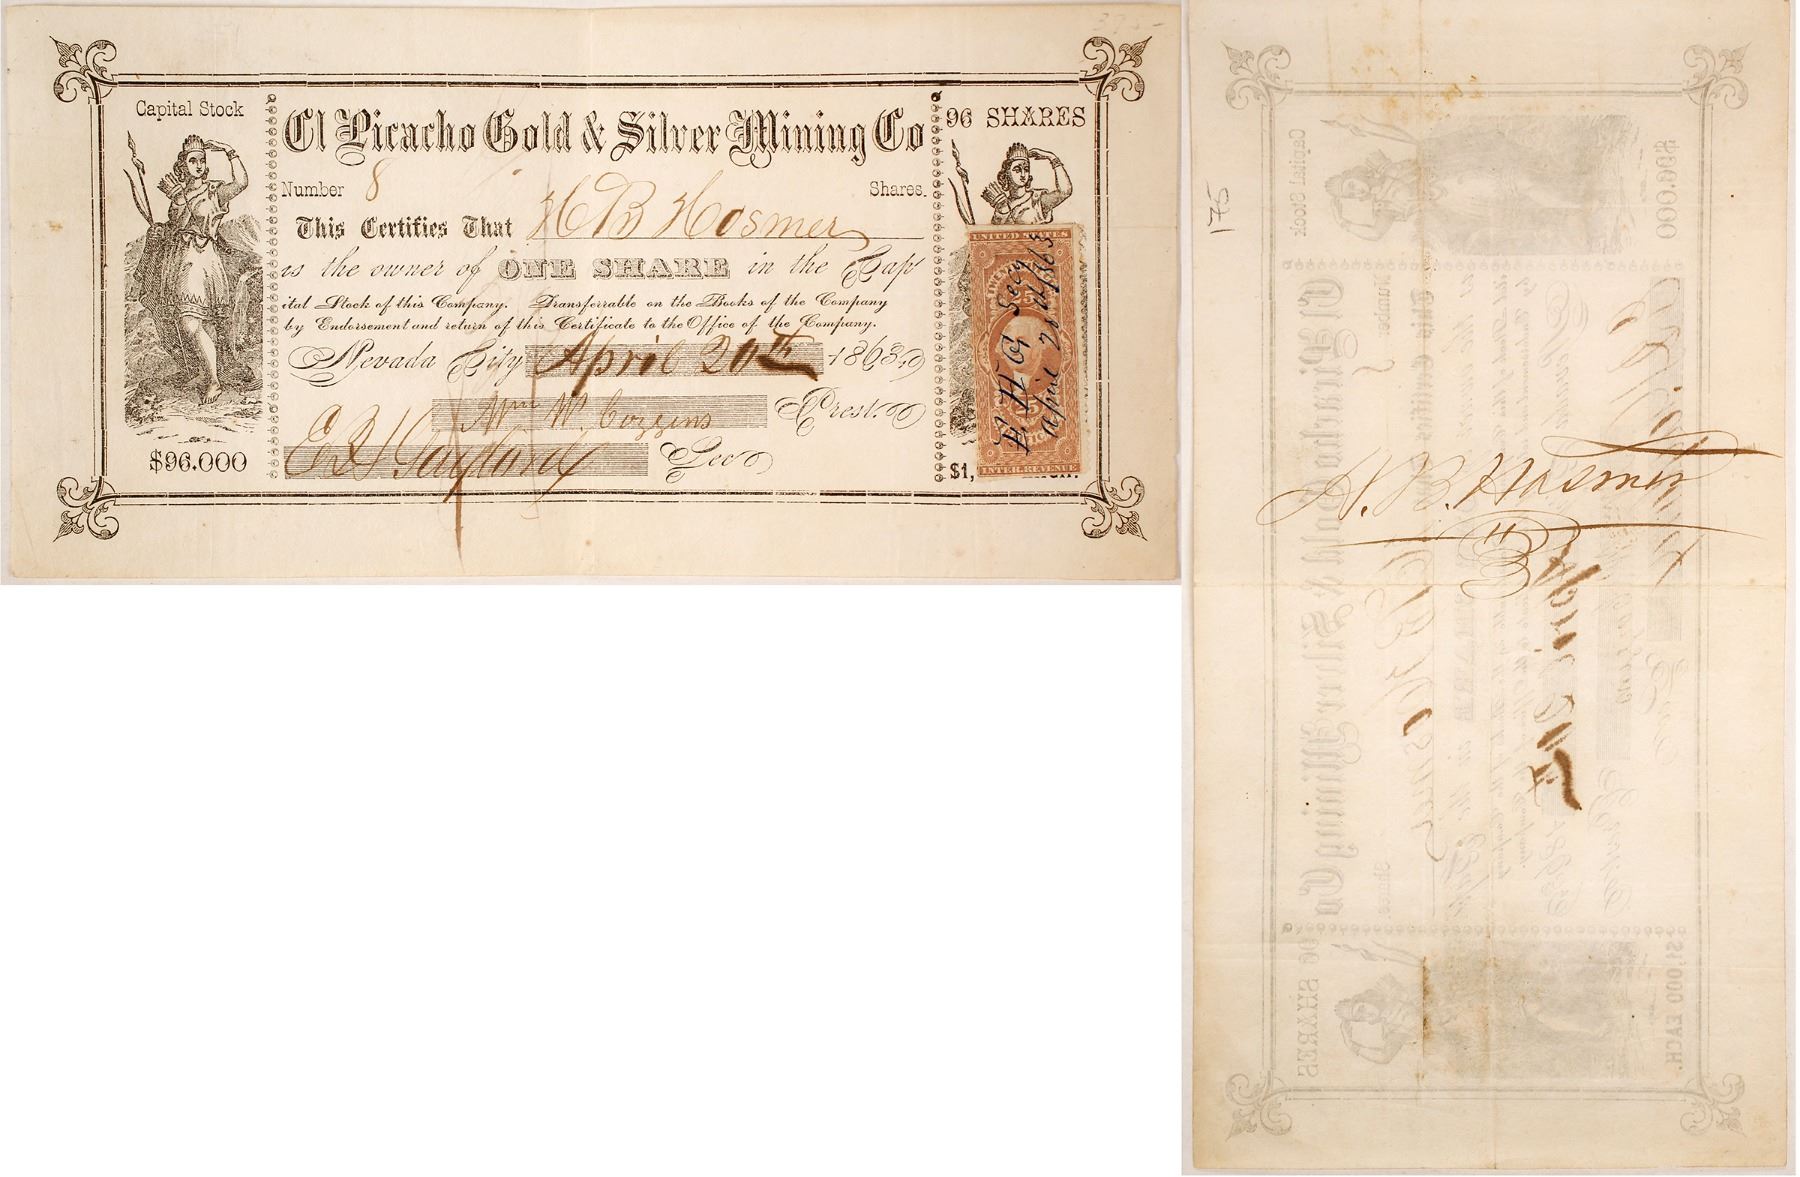 Capital Stock
El Picacho Gold & Silver Mining Co
96 SHARES
Number 8
Shares.
This Certifies That H B Hosmer
is the owner of ONE SHARE in the Cap
ital Stock of this Company. Transferrable on the Books of the Company
by Endorsement and return of this Certificate to the Office of the Company.
Nevada City April 20th 1863
Wm W. Coggins Prest.
E B Gaylord Sec
$96.000
$1,
UNITED STATES
25
INTER. REVENUE
Secy
April 20th/1863
375-
175
H. B. Hosmer